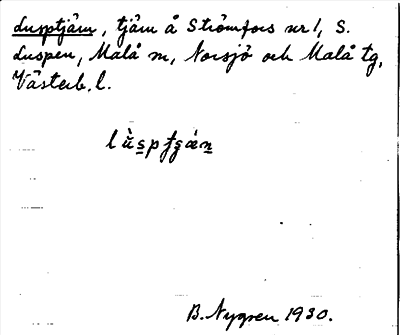 Lusptjärn, tjärn å Strömfors nr 1, S.
Luspen, Malå sn, Norsjö och Malå tg,
Västerb. l.
B. Nygren 1930.